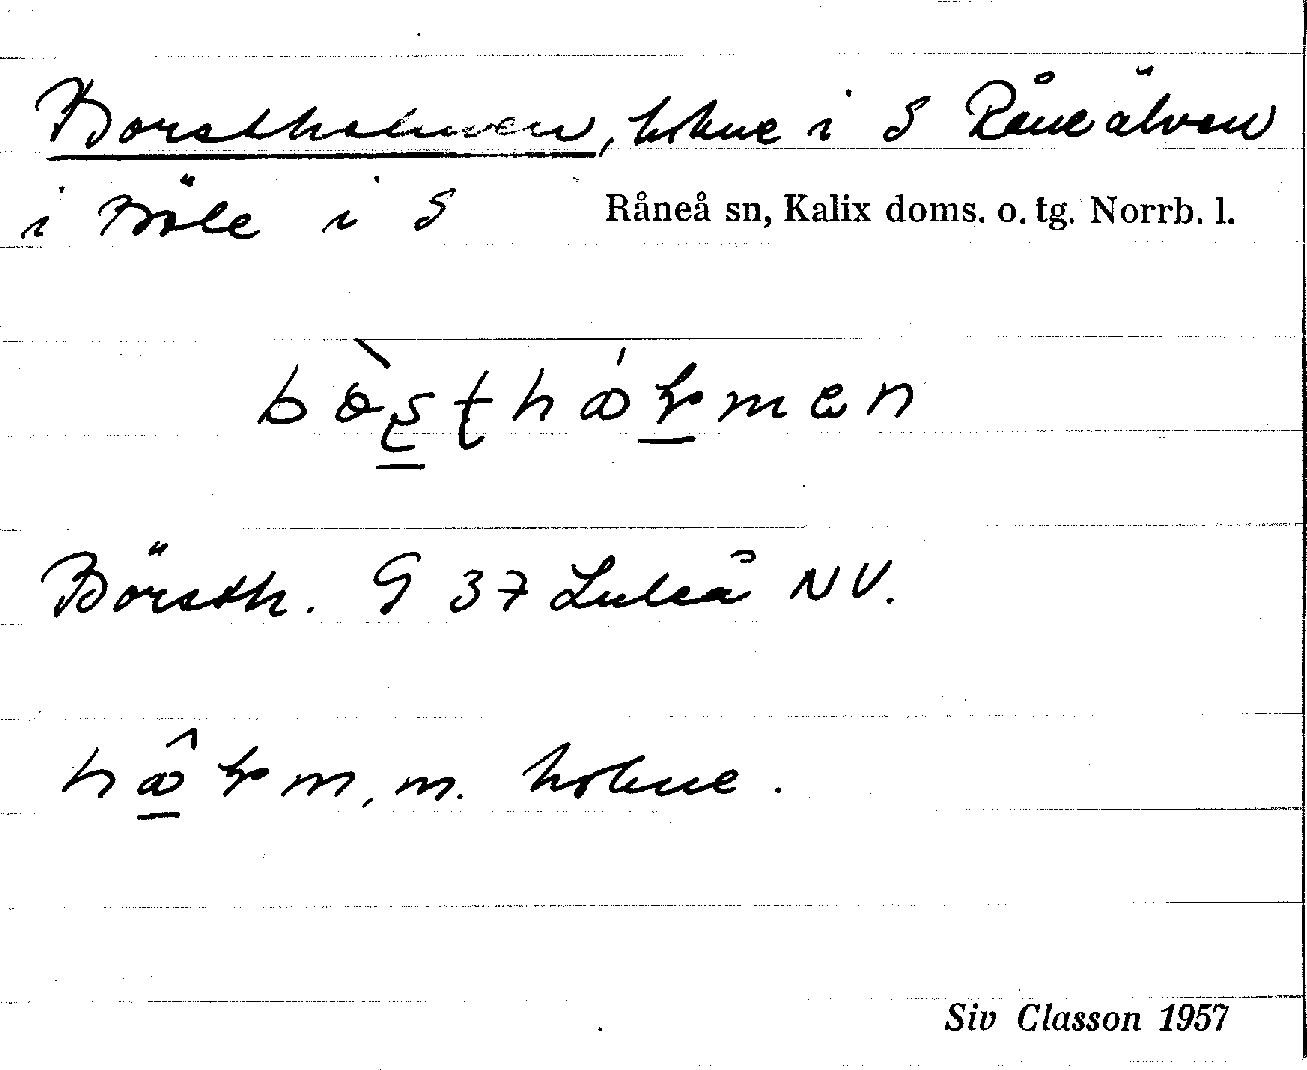 Borstholmen, holme i S Råneälven
i Böle i S Råneå sn, Kalix doms. o. tg. Norrb. l.
Börsth. G 37 Luleå NV.
m. holme.
Siv Classon 1957